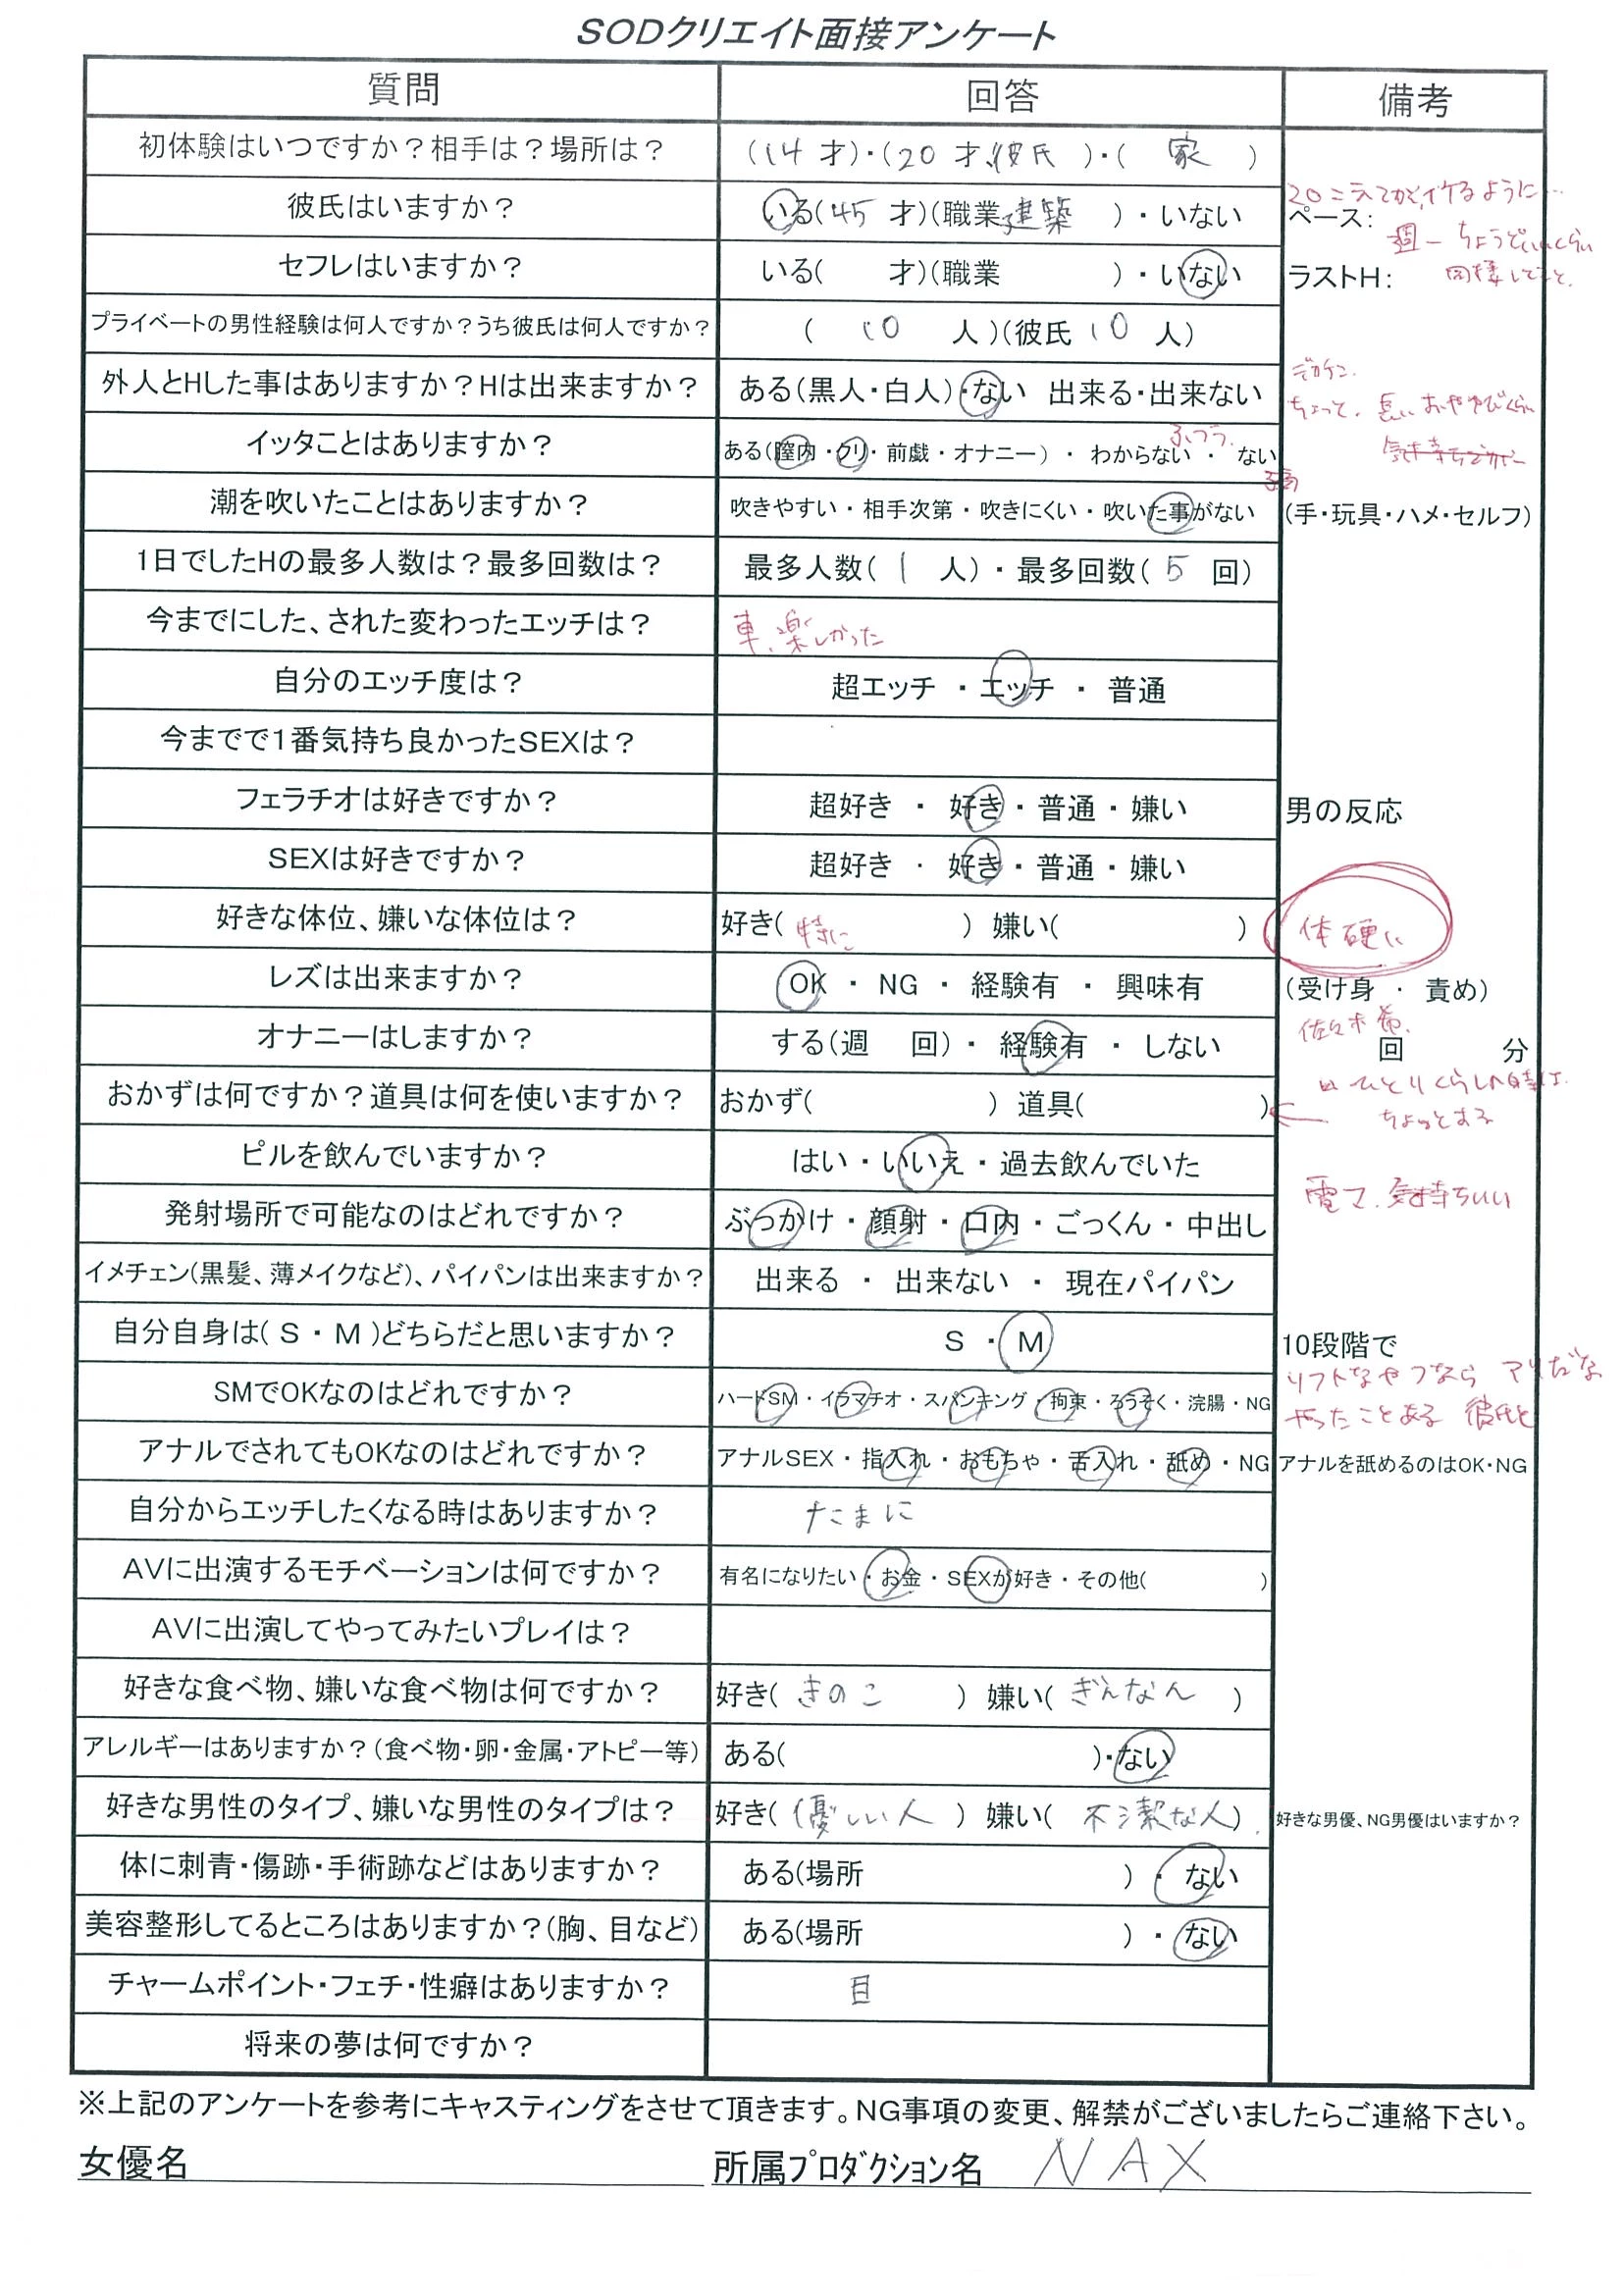 SODクリエイト面接アンケート
質問 回答 備考
初体験はいつですか？相手は？場所は？ (14才)・(20才、彼氏)・(家)
彼氏はいますか？ いる(45才)(職業 建築)・いない
20こえてからイケるように…
ペース:
週一 ちょうどいいくらい
セフレはいますか？ いる( 才)(職業 )・いない ラストH:
プライベートの男性経験は何人ですか？うち彼氏は何人ですか？ (10人)(彼氏10人)
外人とHした事はありますか？Hは出来ますか？ ある(黒人・白人)・ない 出来る・出来ない
デカチン.
イッタことはありますか？ ある(膣内・クリ・前戯・オナニー)・わからない・ない
ふつう.
潮を吹いたことはありますか？ 吹きやすい・相手次第・吹きにくい・吹いた事がない (手・玩具・ハメ・セルフ)
1日でしたHの最多人数は？最多回数は？ 最多人数(1人)・最多回数(5回)
今までにした、された変わったエッチは？ 車、楽しかった
自分のエッチ度は？ 超エッチ・エッチ・普通
今までで1番気持ち良かったSEXは？
フェラチオは好きですか？ 超好き・好き・普通・嫌い 男の反応
SEXは好きですか？ 超好き・好き・普通・嫌い
好きな体位、嫌いな体位は？ 好き(特に) 嫌い( ) 体硬い
レズは出来ますか？ OK・NG・経験有・興味有 (受け身・責め)
佐々木希.
オナニーはしますか？ する(週 回)・経験有・しない 回 分
ひとりくらしの時は.
おかずは何ですか？道具は何を使いますか？ おかず( ) 道具( )
ちょっとする
ピルを飲んでいますか？ はい・いいえ・過去飲んでいた
電マ. 気持ちいい
発射場所で可能なのはどれですか？ ぶっかけ・顔射・口内・ごっくん・中出し
イメチェン(黒髪、薄メイクなど)、パイパンは出来ますか？ 出来る・出来ない・現在パイパン
自分自身は(S・M)どちらだと思いますか？ S・M 10段階で
ソフトなやつなら アリだな
SMでOKなのはどれですか？ ハードSM・イラマチオ・スパンキング・拘束・ろうそく・浣腸・NG
やったことある 彼氏と
アナルでされてもOKなのはどれですか？ アナルSEX・指入れ・おもちゃ・舌入れ・舐め・NG アナルを舐めるのはOK・NG
自分からエッチしたくなる時はありますか？ たまに
AVに出演するモチベーションは何ですか？ 有名になりたい・お金・SEXが好き・その他( )
AVに出演してやってみたいプレイは？
好きな食べ物、嫌いな食べ物は何ですか？ 好き(きのこ) 嫌い(ぎんなん)
アレルギーはありますか？(食べ物・卵・金属・アトピー等) ある( )・ない
好きな男性のタイプ、嫌いな男性のタイプは？ 好き(優しい人) 嫌い(不潔な人) 好きな男優、NG男優はいますか？
体に刺青・傷跡・手術跡などはありますか？ ある(場所 )・ない
美容整形してるところはありますか？(胸、目など) ある(場所 )・ない
チャームポイント・フェチ・性癖はありますか？ 目
将来の夢は何ですか？
※上記のアンケートを参考にキャスティングをさせて頂きます。NG事項の変更、解禁がございましたらご連絡下さい。
女優名 所属プロダクション名 NAX